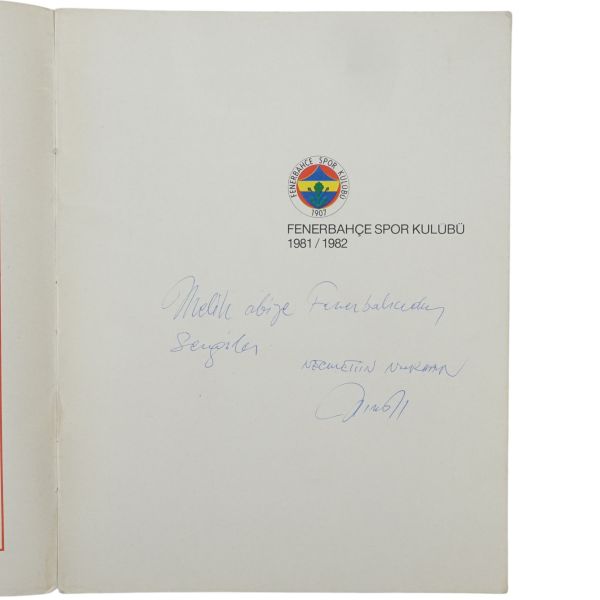 FENERBAHÇE SPOR KULÜBÜ
1907
FENERBAHÇE SPOR KULÜBÜ
1981 / 1982
Melih abiye Fenerbahceden
Sevgiler
NECMETTİN